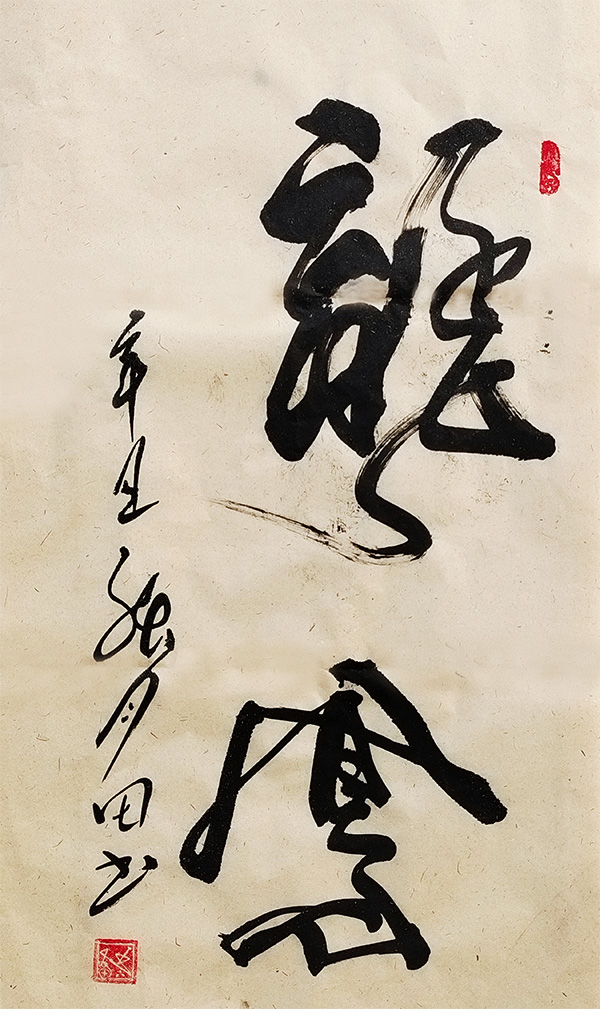 龍鳳
辛丑 月田书